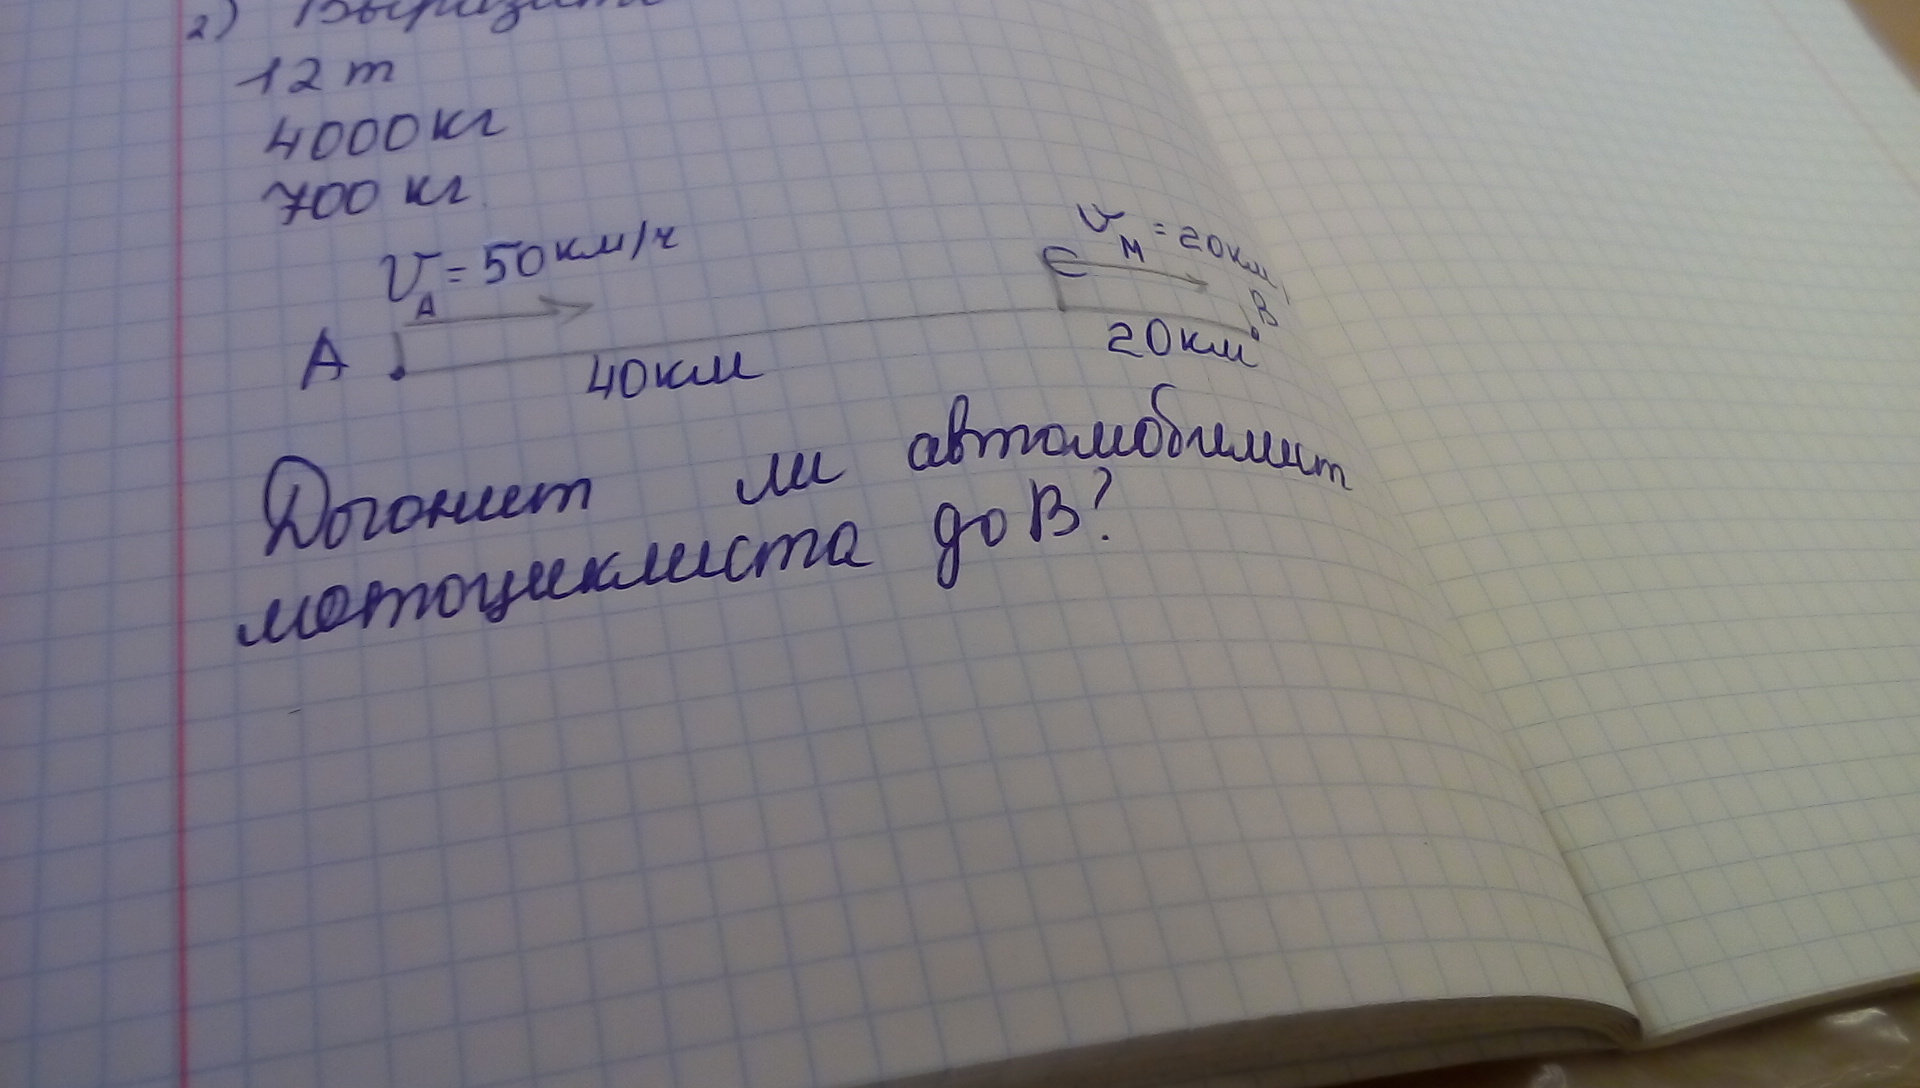 2) Выразить
12 т
4000 кг
700 кг
V_A = 50 км/ч
V_M = 20 км/
A
C
B
40 км
20 км
Догонит ли автомобилист
мотоциклиста до В?